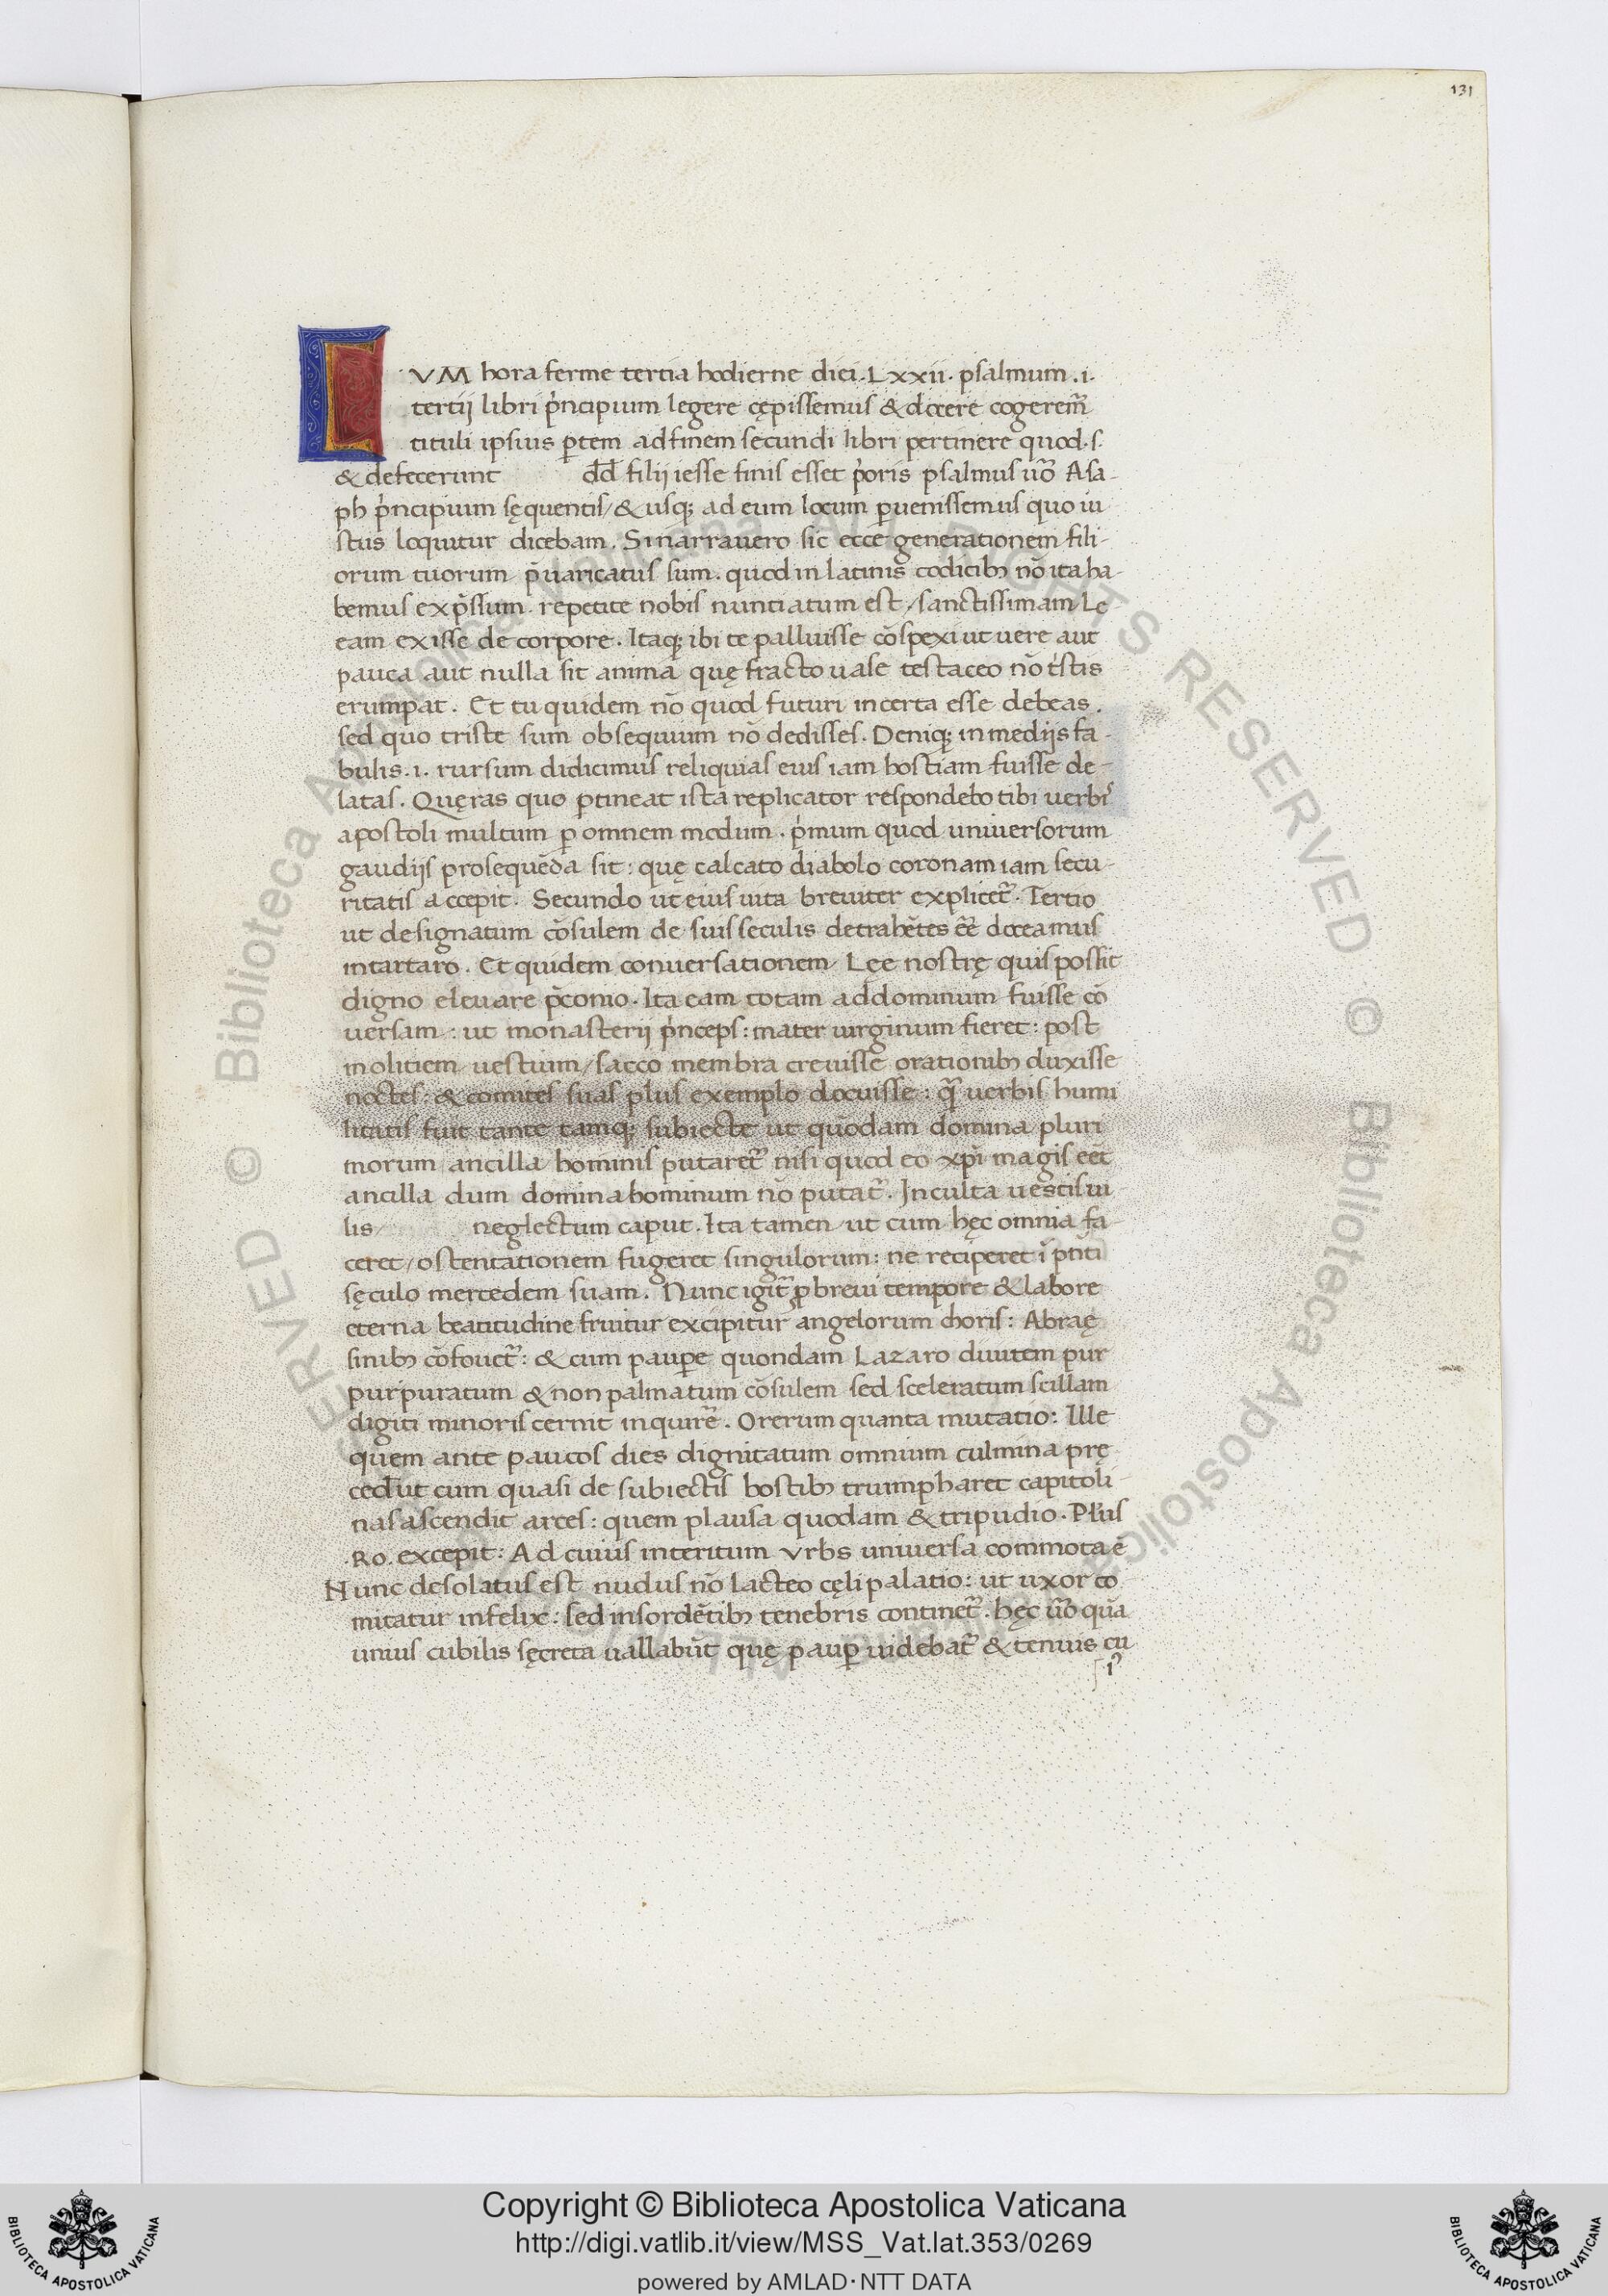 131
CVM hora ferme tertia hodierne diei. Lxxii. psalmum .i.
tertii libri p̓ncipium legere cępissemus & docere cogerem̃
tituli ipsius ꝑtem ad finem secundi libri pertinere quod .s.
& defecerunt dd̄ filii iesse finis esset p̓oris psalmus ũo Asa-
ph p̓ncipium sęquentis / & usq; ad eum locum ꝑuenissemus quo iu
stus loquitur dicebam. Sinarrauero sic ecce generationem fili-
orum tuorum p̄uaricatus sum. quod in latinis codicibꝫ nō ita ha-
bemus exp̄ssum. repetite nobis nuntiatum est / sanctissimam Le
eam exisse de corpore. Itaq; ibi te palluisse cōspexi ut uere aut
pauca aut nulla sit anima quę fracto uase testaceo nō tⁱstis
erumpat. Et tu quidem nō quod futuri incerta esse debeas.
sed quo triste sum obsequium nō dedisses. Deniq; in mediis fa-
bulis .i. rursum didicimus reliquias eius iam hostiam fuisse de-
latas. Quęras quo ꝑtineat ista replicator respondebo tibi uerbis
apostoli multum ꝑ omnem modum. p̓mum quod uniuersorum
gaudiis prosequēda sit: quę calcato diabolo coronam iam secu-
ritatis accepit. Secundo ut eius uita breuiter explicet̃. Tertio
ut designatum cōsulem de suis seculis detrahētes eē doceamus
in tartaro. Et quidem conuersationem Lęe nostrę quis possit
digno eleuare p̄conio. Ita eam totam ad dominum fuisse cō
uersam: ut monasterii p̓nceps: mater uirginum fieret: post
molitiem uestium / sacco membra creuisse orationibꝫ duxisse
noctes: & comites suas plus exemplo docuisse: q̃ uerbis humi
litatis fuit tante tamq; subiecte ut quōdam domina pluri
morum ancilla hominis putaret̃ nisi quod eo xp̄i magis eēt
ancilla dum domina hominum nō putat̃. Inculta uestis ui
lis / neglectum caput. Ita tamen ut cum hęc omnia fa-
ceret / ostentationem fugeret singulorum: ne reciperet ī pn̄ti
sęculo mercedem suam. Nunc igit̃ ꝓ breui tempore & labore
eterna beatitudine fruitur excipitur angelorum choris: Abraę
sinibꝫ cōfouet̃: & cum pauꝑe quondam Lazaro diuitem pur
purpuratum & non palmatum cōsulem sed sceleratum scillam
digiti minoris cernit inquirẽ. O rerum quanta mutatio: Ille
quem ante paucos dies dignitatum omnium culmina prę
cedƀut cum quasi de subiectis hostibꝫ triumpharet capitoli-
nas ascendit arces: quem plausa quodam & tripudio. Pƚus
.RO. excepit: Ad cuius interitum Vrbs uniuersa commota ē
Nunc desolatus est nudus nō lacteo cęli palatio: ut uxor co
mitatur infelix: sed in sordētibꝫ tenebris continet̃. hęc ũo quā
unius cubilis sęcreta uallabūt quę pauꝑ uidebat̃ & tenuis cu
Copyright © Biblioteca Apostolica Vaticana
http://digi.vatlib.it/view/MSS_Vat.lat.353/0269
powered by AMLAD·NTT DATA